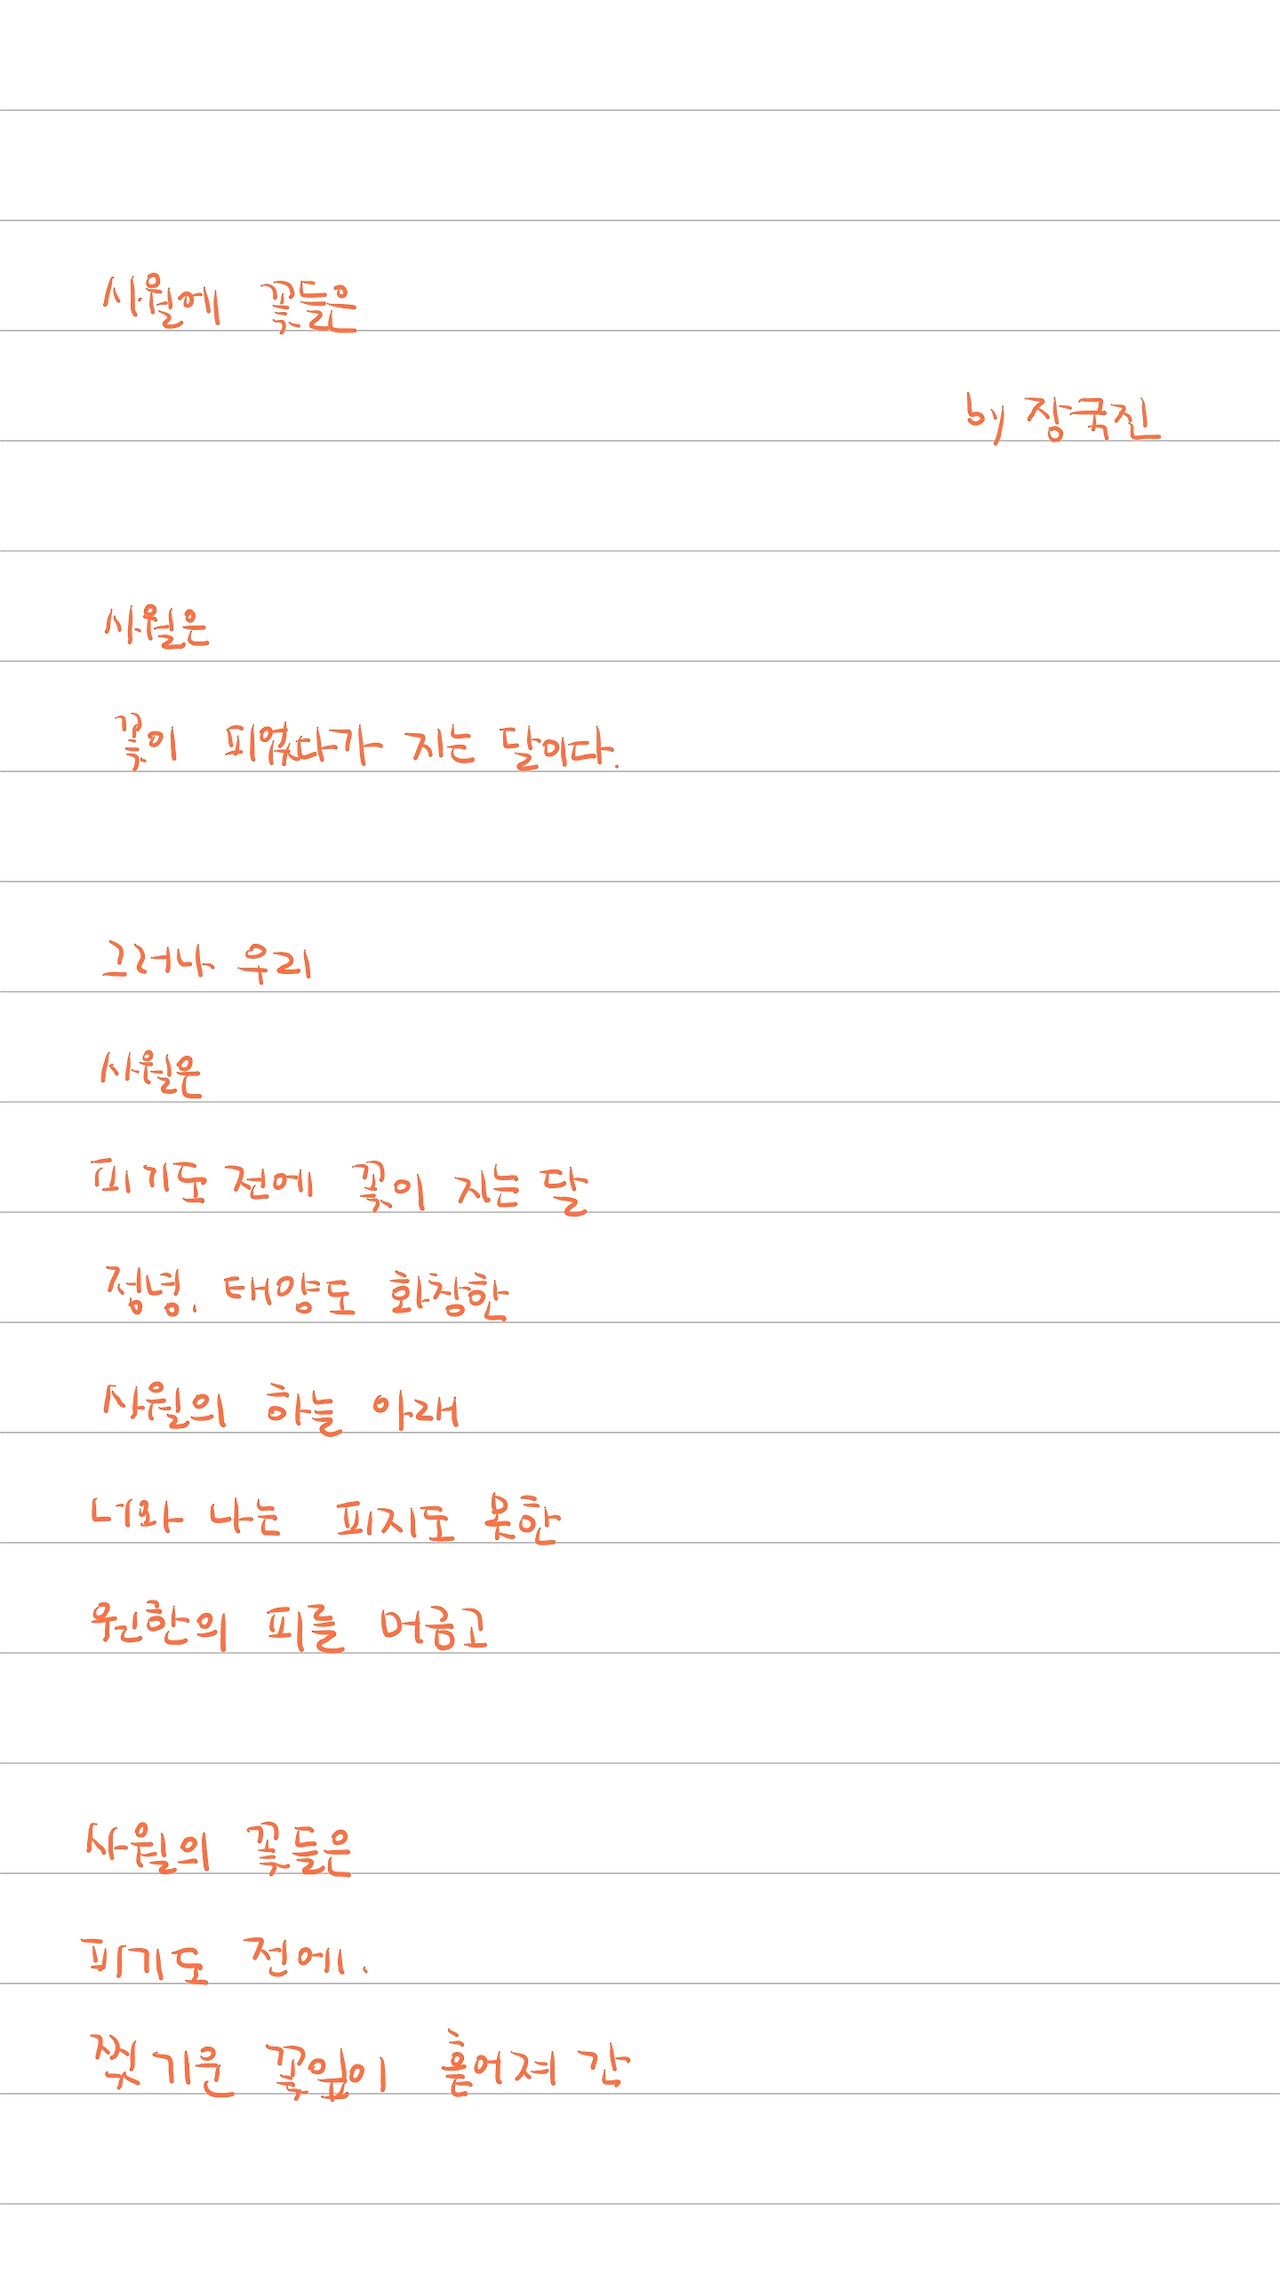 사월에 꽃들은
by 장국진
사월은
꽃이 피었다가 지는 달이다.
그러나 우리
사월은
피기도 전에 꽃이 지는 달
정녕. 태양도 화창한
사월의 하늘 아래
너와 나는 피지도 못한
원한의 피를 머금고
사월의 꽃들은
피기도 전에.
찢기운 꽃잎이 흩어져 간